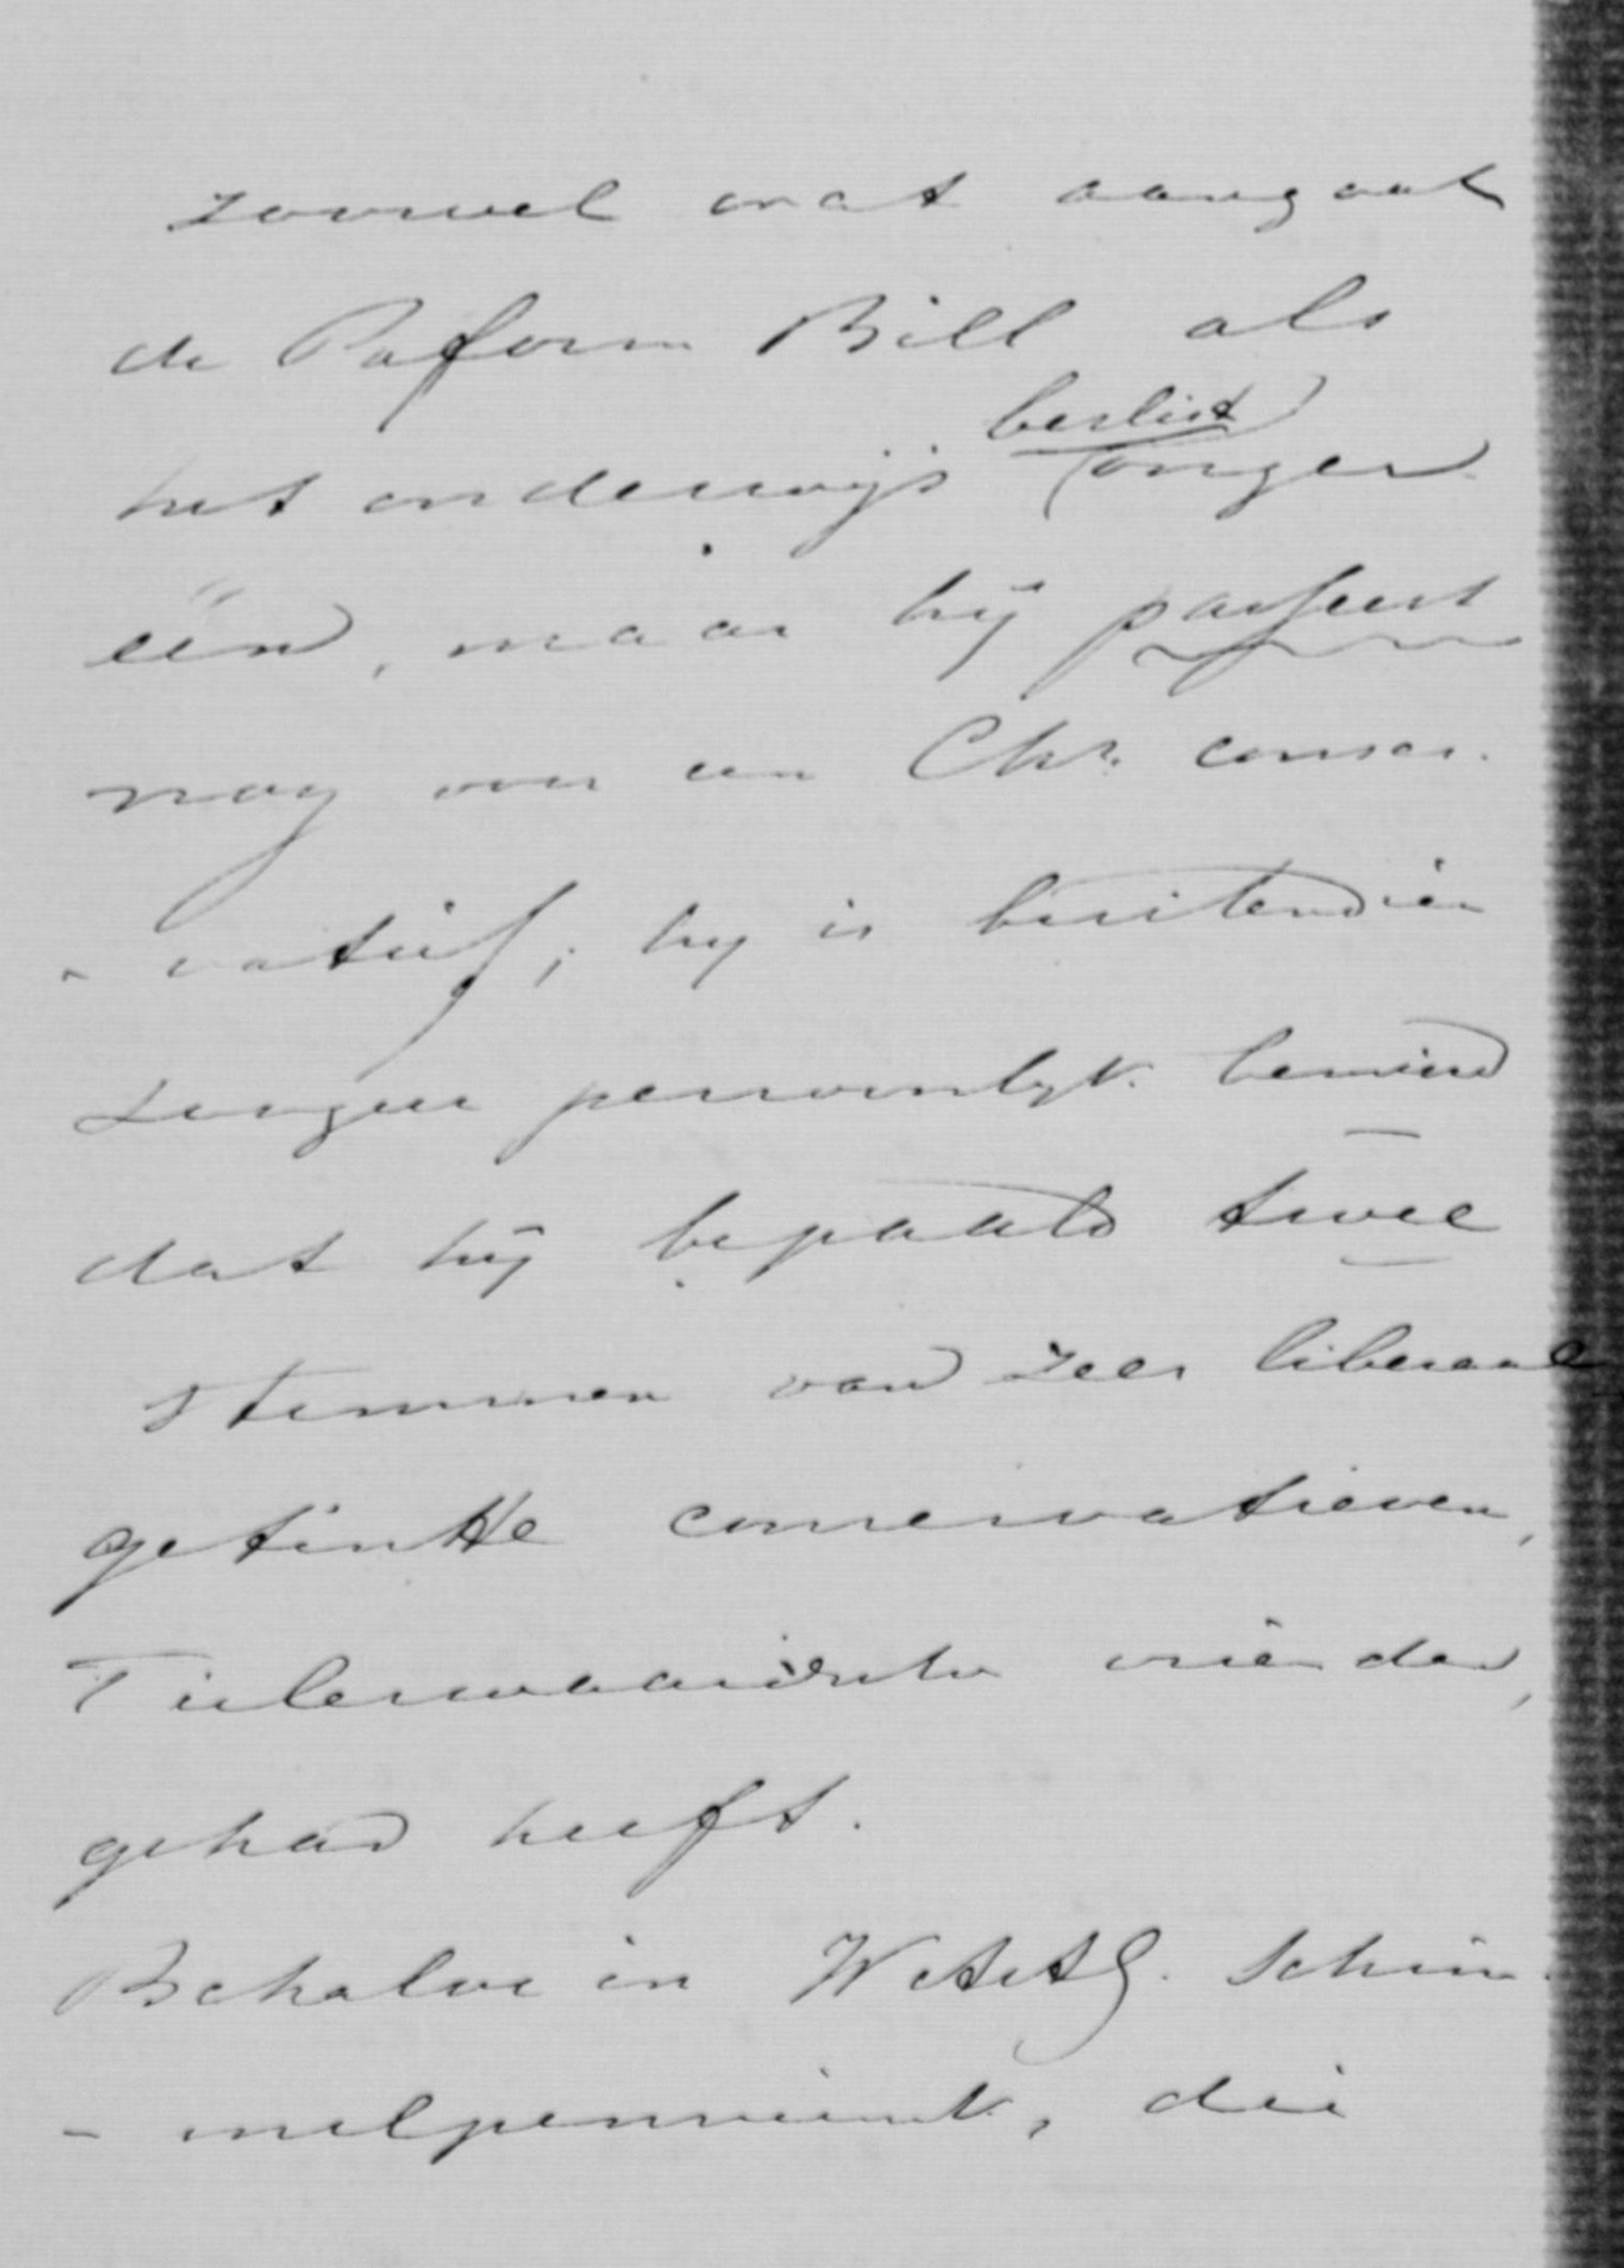 zoowel wat aangaat
de Reform Bill als
het onderwijs beslist tonger
één, maar hij passeert
nog voor een Chr. conser-
- vatief; hij is buitendien
zoozeer persoonlijk bemind
dat hij bepaald twee
stemmen van zeer liberaal
getinkte conservatieven,
Tielerwaardsche vrienden,
gehad heeft.
Behalve in Schim-
- melpenninck, die